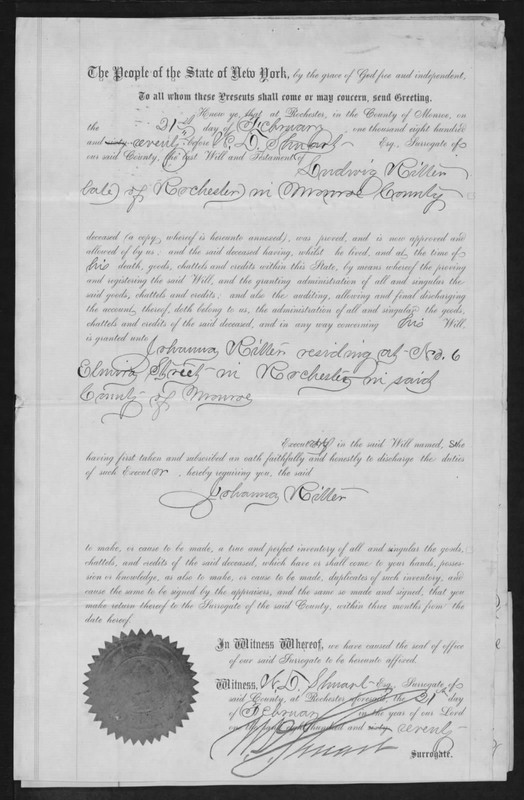 The People of the State of New York, by the grace of God free and independent,
To all whom these Presents shall come or may concern, send Greeting.
Know ye, that at Rochester, in the County of Monroe, on
the 21st day of February one thousand eight hundred
and sixty seventy before W. D. Shuart Esq., Surrogate of
our said County, the last Will and Testament of Ludwig Ritter
late of Rochester in Monroe County
deceased (a copy whereof is hereunto annexed), was proved, and is now approved and
allowed of by us; and the said deceased having, whilst he lived, and at the time of
his death, goods, chattels and credits within this State, by means whereof the proving
and registering the said Will, and the granting administration of all and singular the
said goods, chattels and credits; and also the auditing, allowing and final discharging
the account thereof, doth belong to us, the administration of all and singular the goods,
chattels and credits of the said deceased, and in any way concerning his Will,
is granted unto Johanna Ritter residing at No. 6
Elmira Street in Rochester in said
County of Monroe
Executrix in the said Will named, She
having first taken and subscribed an oath faithfully and honestly to discharge the duties
of such Execut , hereby requiring you, the said
Johanna Ritter
to make, or cause to be made, a true and perfect inventory of all and singular the goods,
chattels, and credits of the said deceased, which have or shall come to your hands, posses-
sion or knowledge, as also to make, or cause to be made, duplicates of such inventory, and
cause the same to be signed by the appraisers, and the same so made and signed, that you
make return thereof to the Surrogate of the said County, within three months from the
date hereof.
In Witness Whereof, we have caused the seal of office
of our said Surrogate to be hereunto affixed.
Witness, W. D. Shuart Esq., Surrogate of
said County, at Rochester aforesaid, the 21st day
of February in the year of our Lord
one thousand eight hundred and sixty seventy
W. D. Shuart
Surrogate.